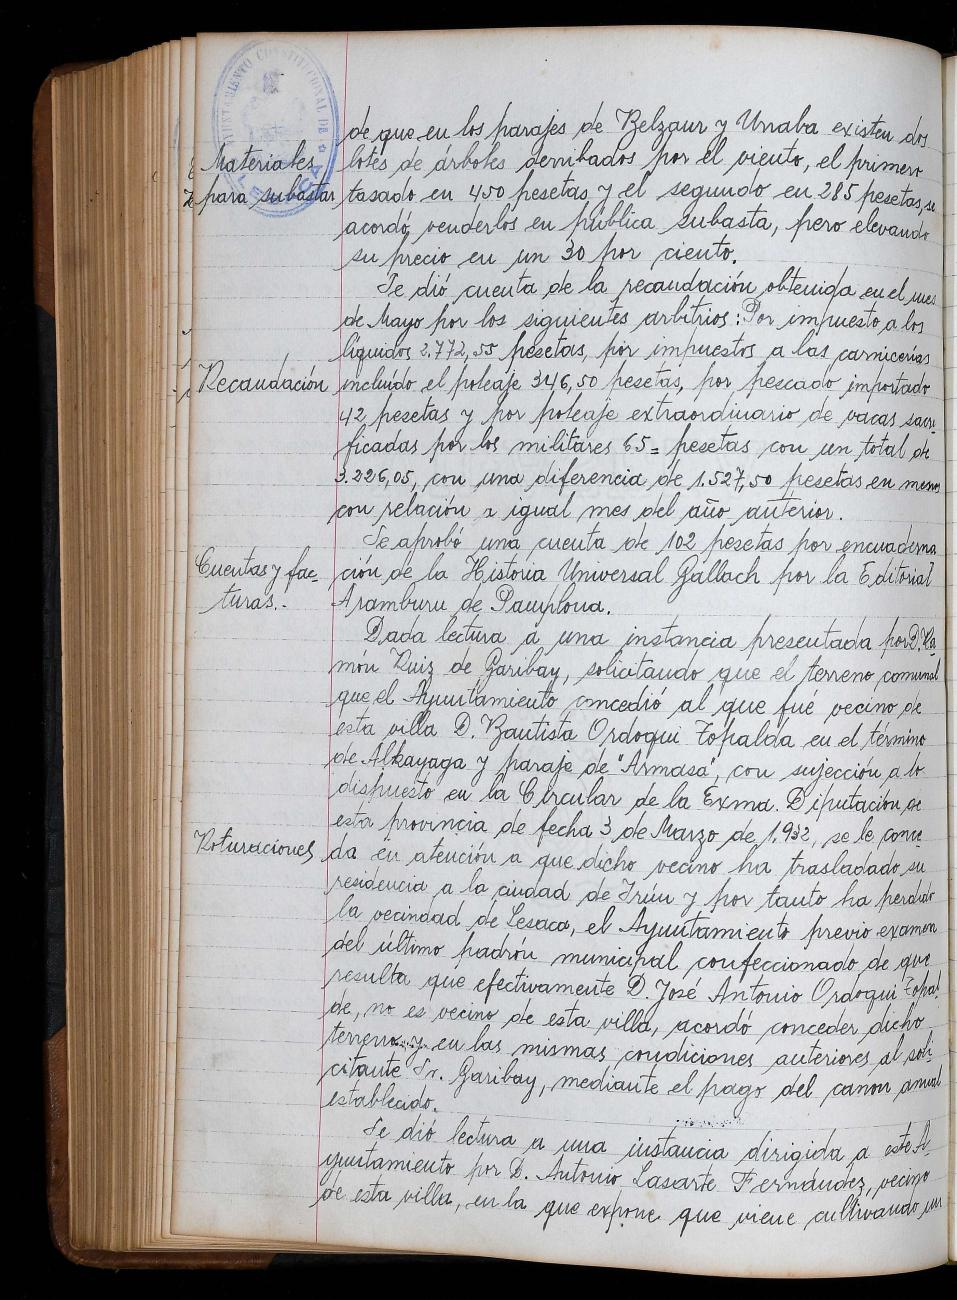 AYUNTAMIENTO CONSTITUCIONAL DE
LESACA
de que en los parajes de Belzaur y Unaba existen dos
Materiales
lotes de árboles derribados por el viento, el primero
para subastar
tasado en 450 pesetas y el segundo en 285 pesetas, se
acordó venderlos en pública subasta, pero elevando
su precio en un 30 por ciento.
Se dió cuenta de la recaudación obtenida en el mes
de Mayo por los siguientes arbitrios: Por impuesto a los
líquidos 2.772,55 pesetas, por impuestos a las carnicerías
Recaudación
incluído el poleaje 346,50 pesetas, por pescado importado
42 pesetas y por poleaje extraordinario de vacas sacri-
ficadas por los militares 65= pesetas con un total de
3.226,05, con una diferencia de 1.527,50 pesetas en menos
con relación a igual mes del año anterior.
Se aprobó una cuenta de 102 pesetas por encuaderna
Cuentas y fac-
ción de la Historia Universal Gallach por la Editorial
turas.-
Aramburu de Pamplona.
Dada lectura a una instancia presentada por D. Ra-
món Ruiz de Garibay, solicitando que el terreno comunal
que el Ayuntamiento concedió al que fué vecino de
esta villa D. Bautista Ordoqui Zopalda en el término
de Alkayaga y paraje de "Armasa", con sujección a lo
dispuesto en la Circular de la Exma. Diputación de
esta provincia de fecha 3 de Marzo de 1.932, se le conce
Roturaciones
da en atención a que dicho vecino ha trasladado su
residencia a la ciudad de Irún y por tanto ha perdido
la vecindad de Lesaca, el Ayuntamiento previo examen
del último padrón municipal confeccionado de que
resulta que efectivamente D. José Antonio Ordoqui Zopal-
de, no es vecino de esta villa, acordó conceder dicho
terreno y en las mismas condiciones anteriores al soli-
citante Sr. Garibay, mediante el pago del canon anual
establecido.
Se dió lectura a una instancia dirigida a este A-
yuntamiento por D. Antonio Lasarte Fernández, vecino
de esta villa, en la que expone que viene cultivando un